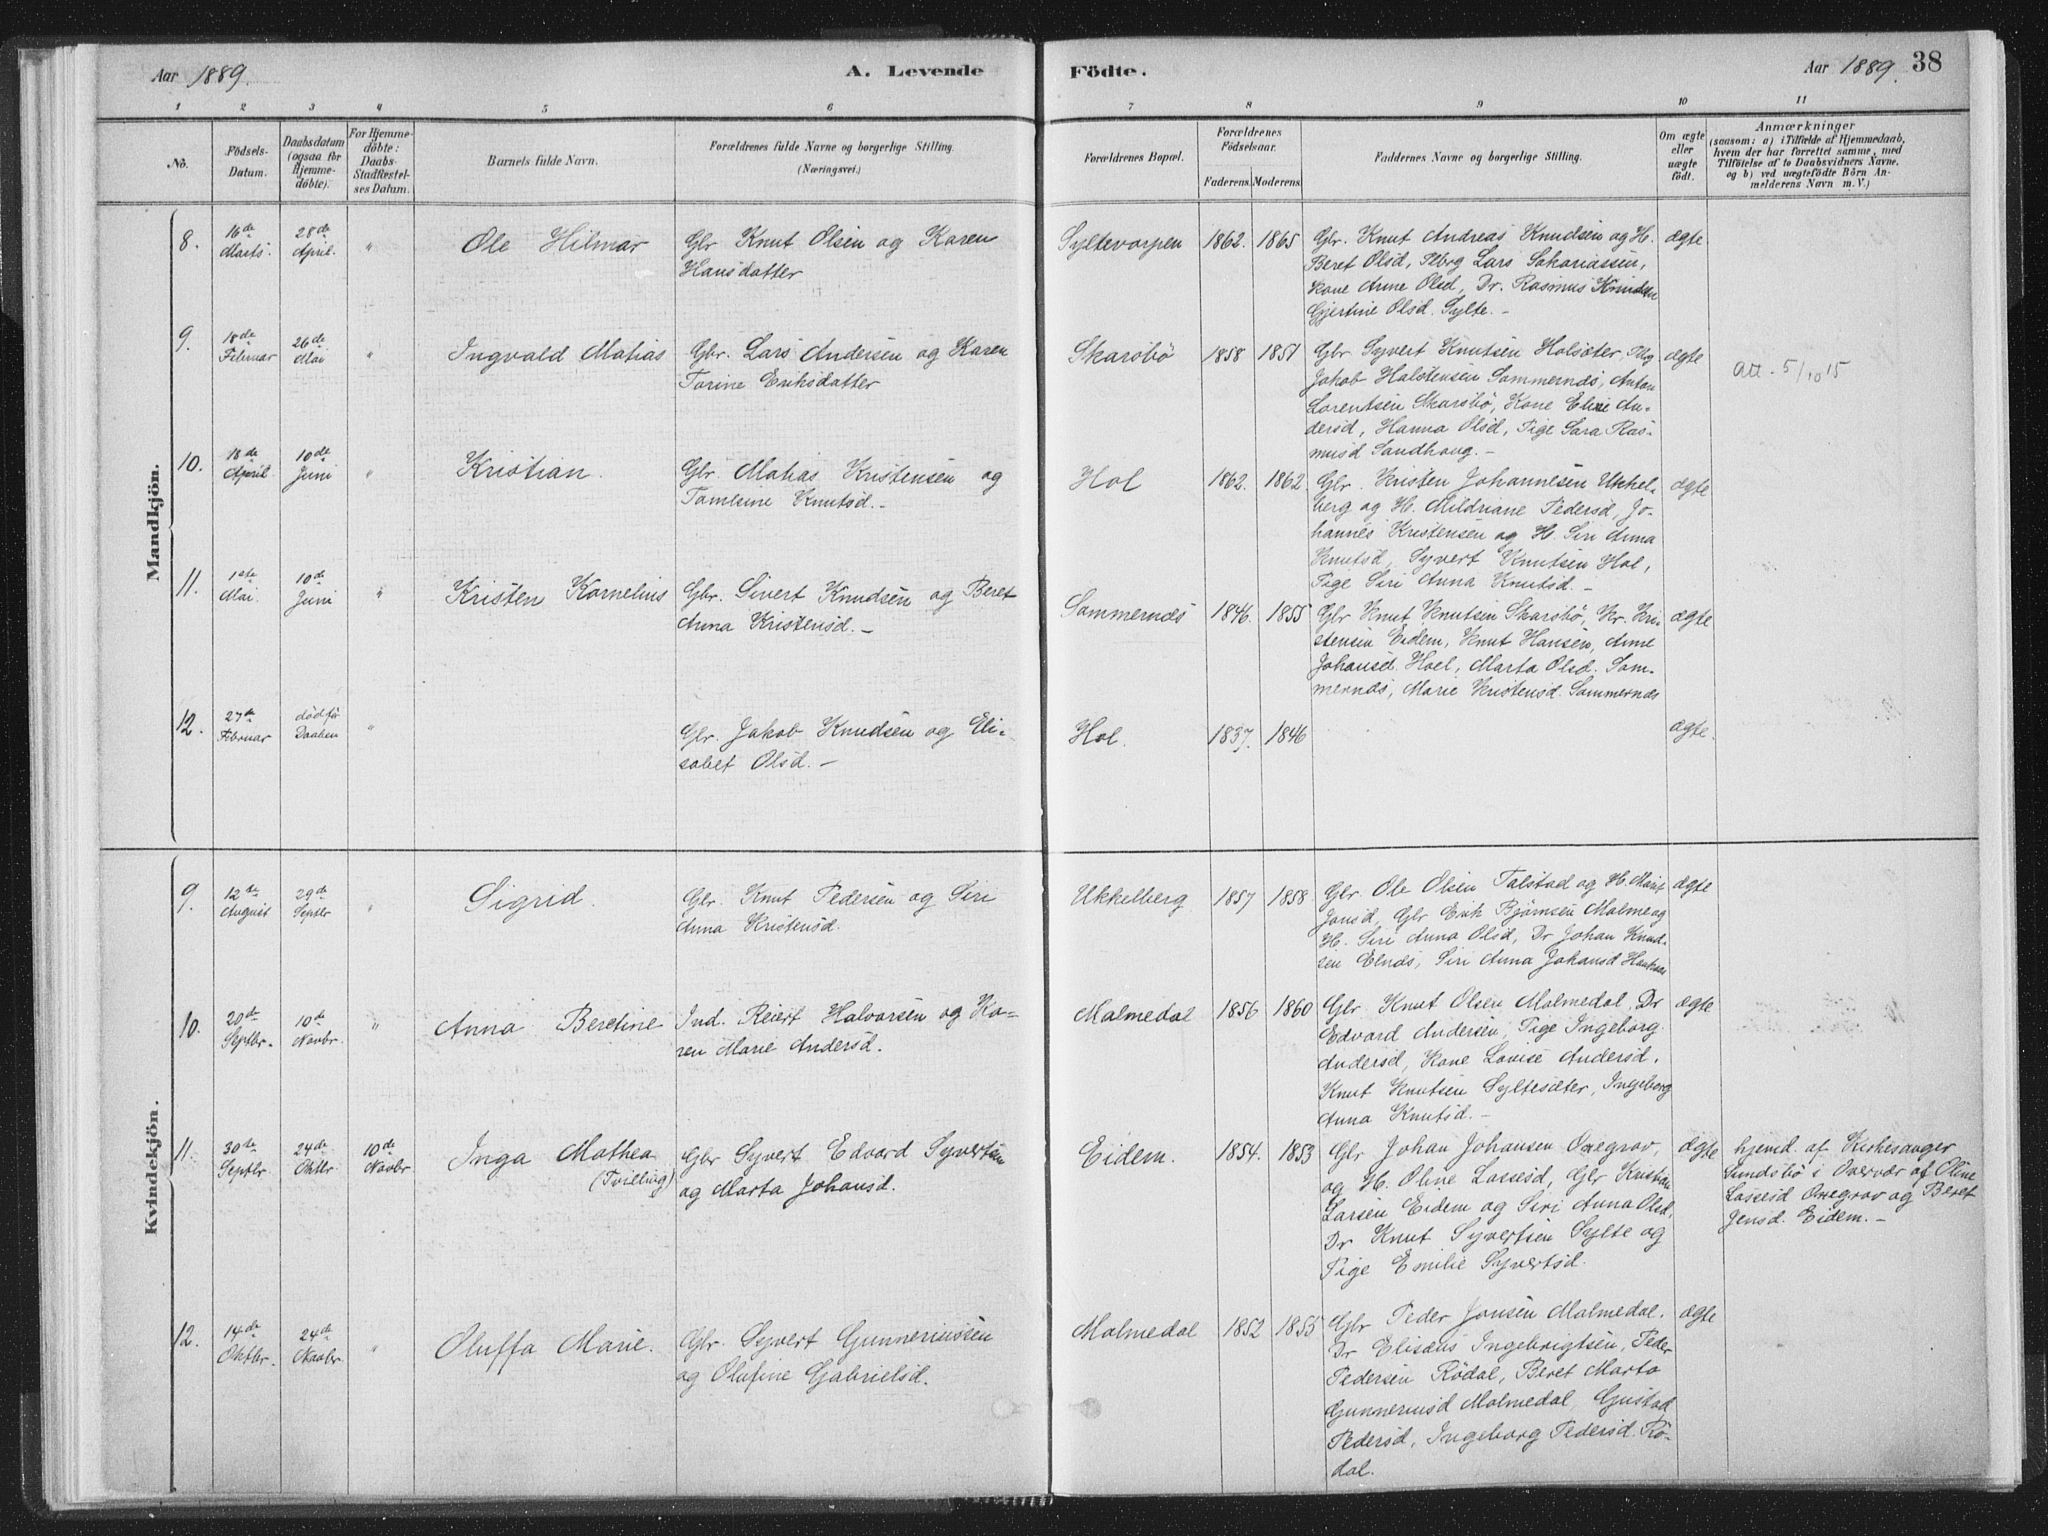 Aar 1889.
A. Levende
Födte.
Aar 1889.
38
1 2 3 4 5 6 7 8 9 10 11
No.
Födsels-
Datum.
Daabsdatum
(ogsaa for
Hjemme-
döbte).
For Hjemme-
döbte:
Daabs-
Stadfæstel-
ses Datum.
Barnets fulde Navn.
Forældrenes fulde Navne og borgerlige Stilling.
(Næringsvei.)
Forældrenes Bopæl.
Forældrenes
Födselsaar.
Faderens. Moderens.
Faddernes Navne og borgerlige Stilling.
Om ægte
eller
uægte
födt.
Anmærkninger
(saasom: a) i Tilfælde af Hjemmedaab,
hvem der har forrettet samme, med
Tilföielse af to Daabsvidners Navne.
og b) ved uægtefödte Börn An-
melderens Navn m. V.)
Mandkjön.
8.
16de
Marts.
28de
April.
"
Ole Hilmar
Gbr Knut Olsen og Karen
Hansdatter
Syltevorpen
1862. 1865
Gbr. Knut Andreas Knudsen og H.
Beret Olsd, Pbrg Lars Sakariassen,
Kone Anne Olsd, Dr. Rasmus Knudsen
Gjertine Olsd. Sylte. -
ægte
9.
18de
Februar
26de
Mai
"
Ingvald Matias
Gbr. Lars Andersen og Karen
Torine Eriksdatter
Skarsbö
1858 1851
Gbr Syvert Knutsen Holsæter, Pbrg
Jakob Halstensen Sommernæs, Anton
Lorentsen Skarsbö, Kone Eline An-
dersd, Hanna Olsd, Pige Sara Ras-
musd Sandhoug. -
ægte
Att. 5/10 15
10.
18de
April
10de
Juni
"
Kristian.
Gbr. Matias Kristensen og
Tomlene Knutsd. -
Hol
1862. 1862
Gbr. Kristen Johannesen Ukkel-
berg og H. Mildriane Pedersd, Jo-
hannes Kristensen og H. Siri Anna
Knutsd, Syvert Knutsen Hol,
Pige Siri Anna Knutsd. -
ægte
11.
1ste
Mai.
10de
Juni
"
Kristen Kornelius
Gbr. Sivert Knudsen og Beret
Anna Kristensd. -
Sommernæs
1846. 1855
Gbr Knut Knutsen Skarsbö, Kr. Kri-
stensen Eidem, Knut Hansen, Anne
Johansd. Hoel, Marta Olsd. Som-
mernæs, Marie Kristensd. Sommernæs
ægte
12.
27de
Februar
död för
Daaben
"
Gbr. Jakob Knudsen og Eli-
sabet Olsd. -
Hol.
1837. 1846
ægte.
Kvindekjön.
9.
12te
August
29de
Septbr
"
Sigrid.
Gbr. Knut Pedersen og Siri
Anna Kristensd.
Ukkelberg
1857 1858
Gbr Ole Olsen Talstad og H. Marit
Jonsd, Gbr Erik Bjørnsen Malme og
H. Siri Anna Olsd, Dr Johan Knud-
sen Elnæs, Siri Anna Johansd
ægte
10.
20de
Septbr.
10de
Novbr.
"
Anna Beretine
Ind. Reiert Halvorsen og Ka-
ren Marie Andersd.
Malmedal
1856 1860
Gbr Knut Olsen Malmedal, Dr
Edvard Andersen, Pige Ingeborg
Andersd, Kone Lovise Andersd,
Knut Knutsen Syltesæter, Ingeborg
Anna Knutsd. -
ægte
11.
30te
Septbr
24de
Oktbr
10de
Novbr
Inga Mathea
(Tvilling)
Gbr Syvert Edvard Syvertsen
og Marta Johansd.
Eidem.
1854. 1853
Gbr Johan Johansen Oxegrov,
og H. Oline Lassesd, Gbr Kristian
Larsen Eidem og Siri Anna Olsd,
Dr Knut Syvertsen Sylte og
Pige Emilie Syvertsd.
ægte
hjemd. af Kirkesanger
Sundsbö i Overvær af Oline
Lassesd Oxegrov og Beret
Jensd. Eidem. -
12.
14de
Oktbr.
24de
Novbr.
"
Oluffa Marie.
Gbr. Syvert Gunneriussen
og Olufine Gabrielsd.
Malmedal
1852 1855
Gbr Peder Jonsen Malmedal.
Dr Elisæus Ingebrigtsen, Peder
Pedersen Rödal, Beret Marta
Gunneriusd Malmedal, Gjustad
Pedersd, Ingeborg Pedersd. Rö-
dal.
ægte